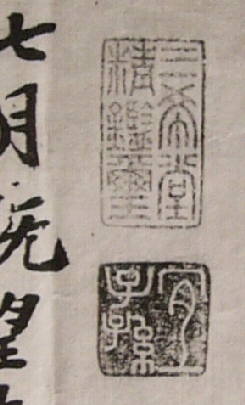 七月既望
三希堂
精鑑璽
宜
子孫